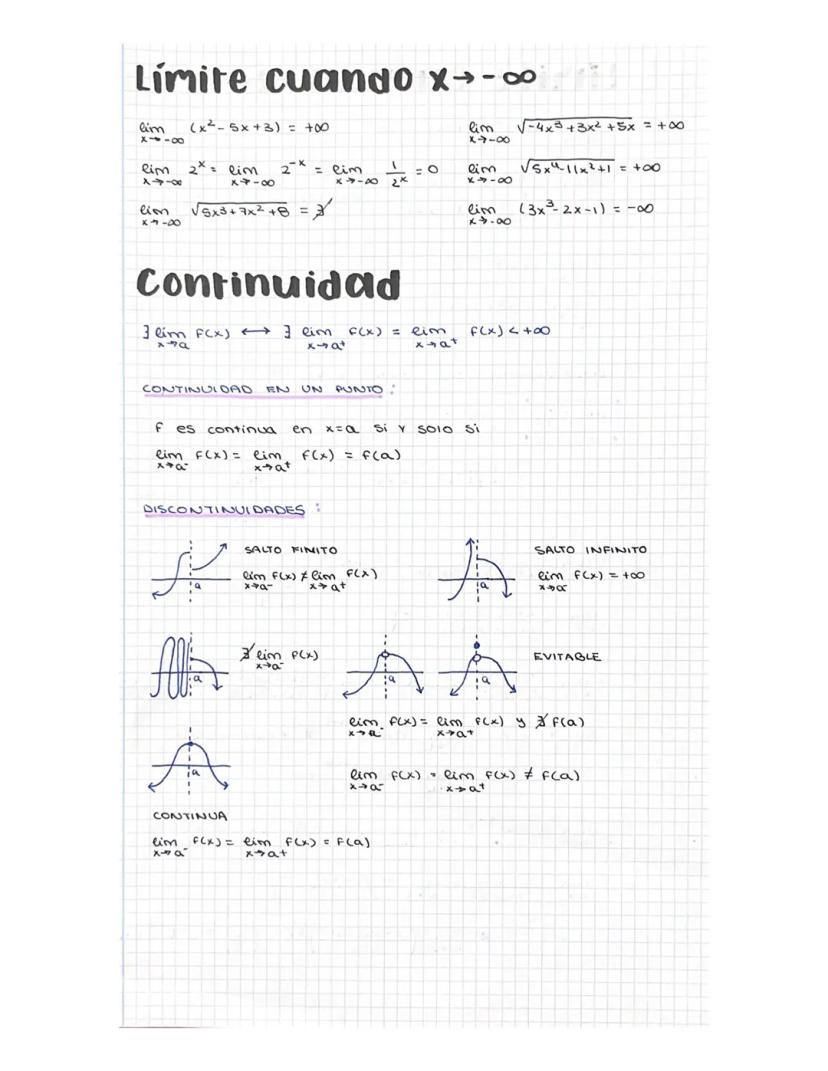 Límite cuando x→-∞
lim x→-∞ (x² - 5x + 3) = +∞
lim x→-∞ √-4x³ + 3x² + 5x = +∞
lim x→-∞ 2ˣ = lim x→-∞ 2⁻ˣ = lim x→-∞ 1/2ˣ = 0
lim x→-∞ √5x⁴-11x²+1 = +∞
lim x→-∞ √5x³ + 7x² + 8 = ∄
lim x→-∞ (3x³ - 2x - 1) = -∞
Continuidad
∃ lim x→a f(x) ⟷ ∃ lim x→a⁺ f(x) = lim x→a⁺ f(x) < +∞
CONTINUIDAD EN UN PUNTO:
f es continua en x=a si y solo si
lim x→a⁻ f(x) = lim x→a⁺ f(x) = f(a)
DISCONTINUIDADES:
a
SALTO FINITO
lim x→a⁻ f(x) ≠ lim x→a⁺ f(x)
a
SALTO INFINITO
lim x→a⁻ f(x) = +∞
a
∄ lim x→a⁻ f(x)
a
a
EVITABLE
lim x→a⁻ f(x) = lim x→a⁺ f(x) y ∄ f(a)
lim x→a⁻ f(x) = lim x→a⁺ f(x) ≠ f(a)
a
CONTINUA
lim x→a⁻ f(x) = lim x→a⁺ f(x) = f(a)